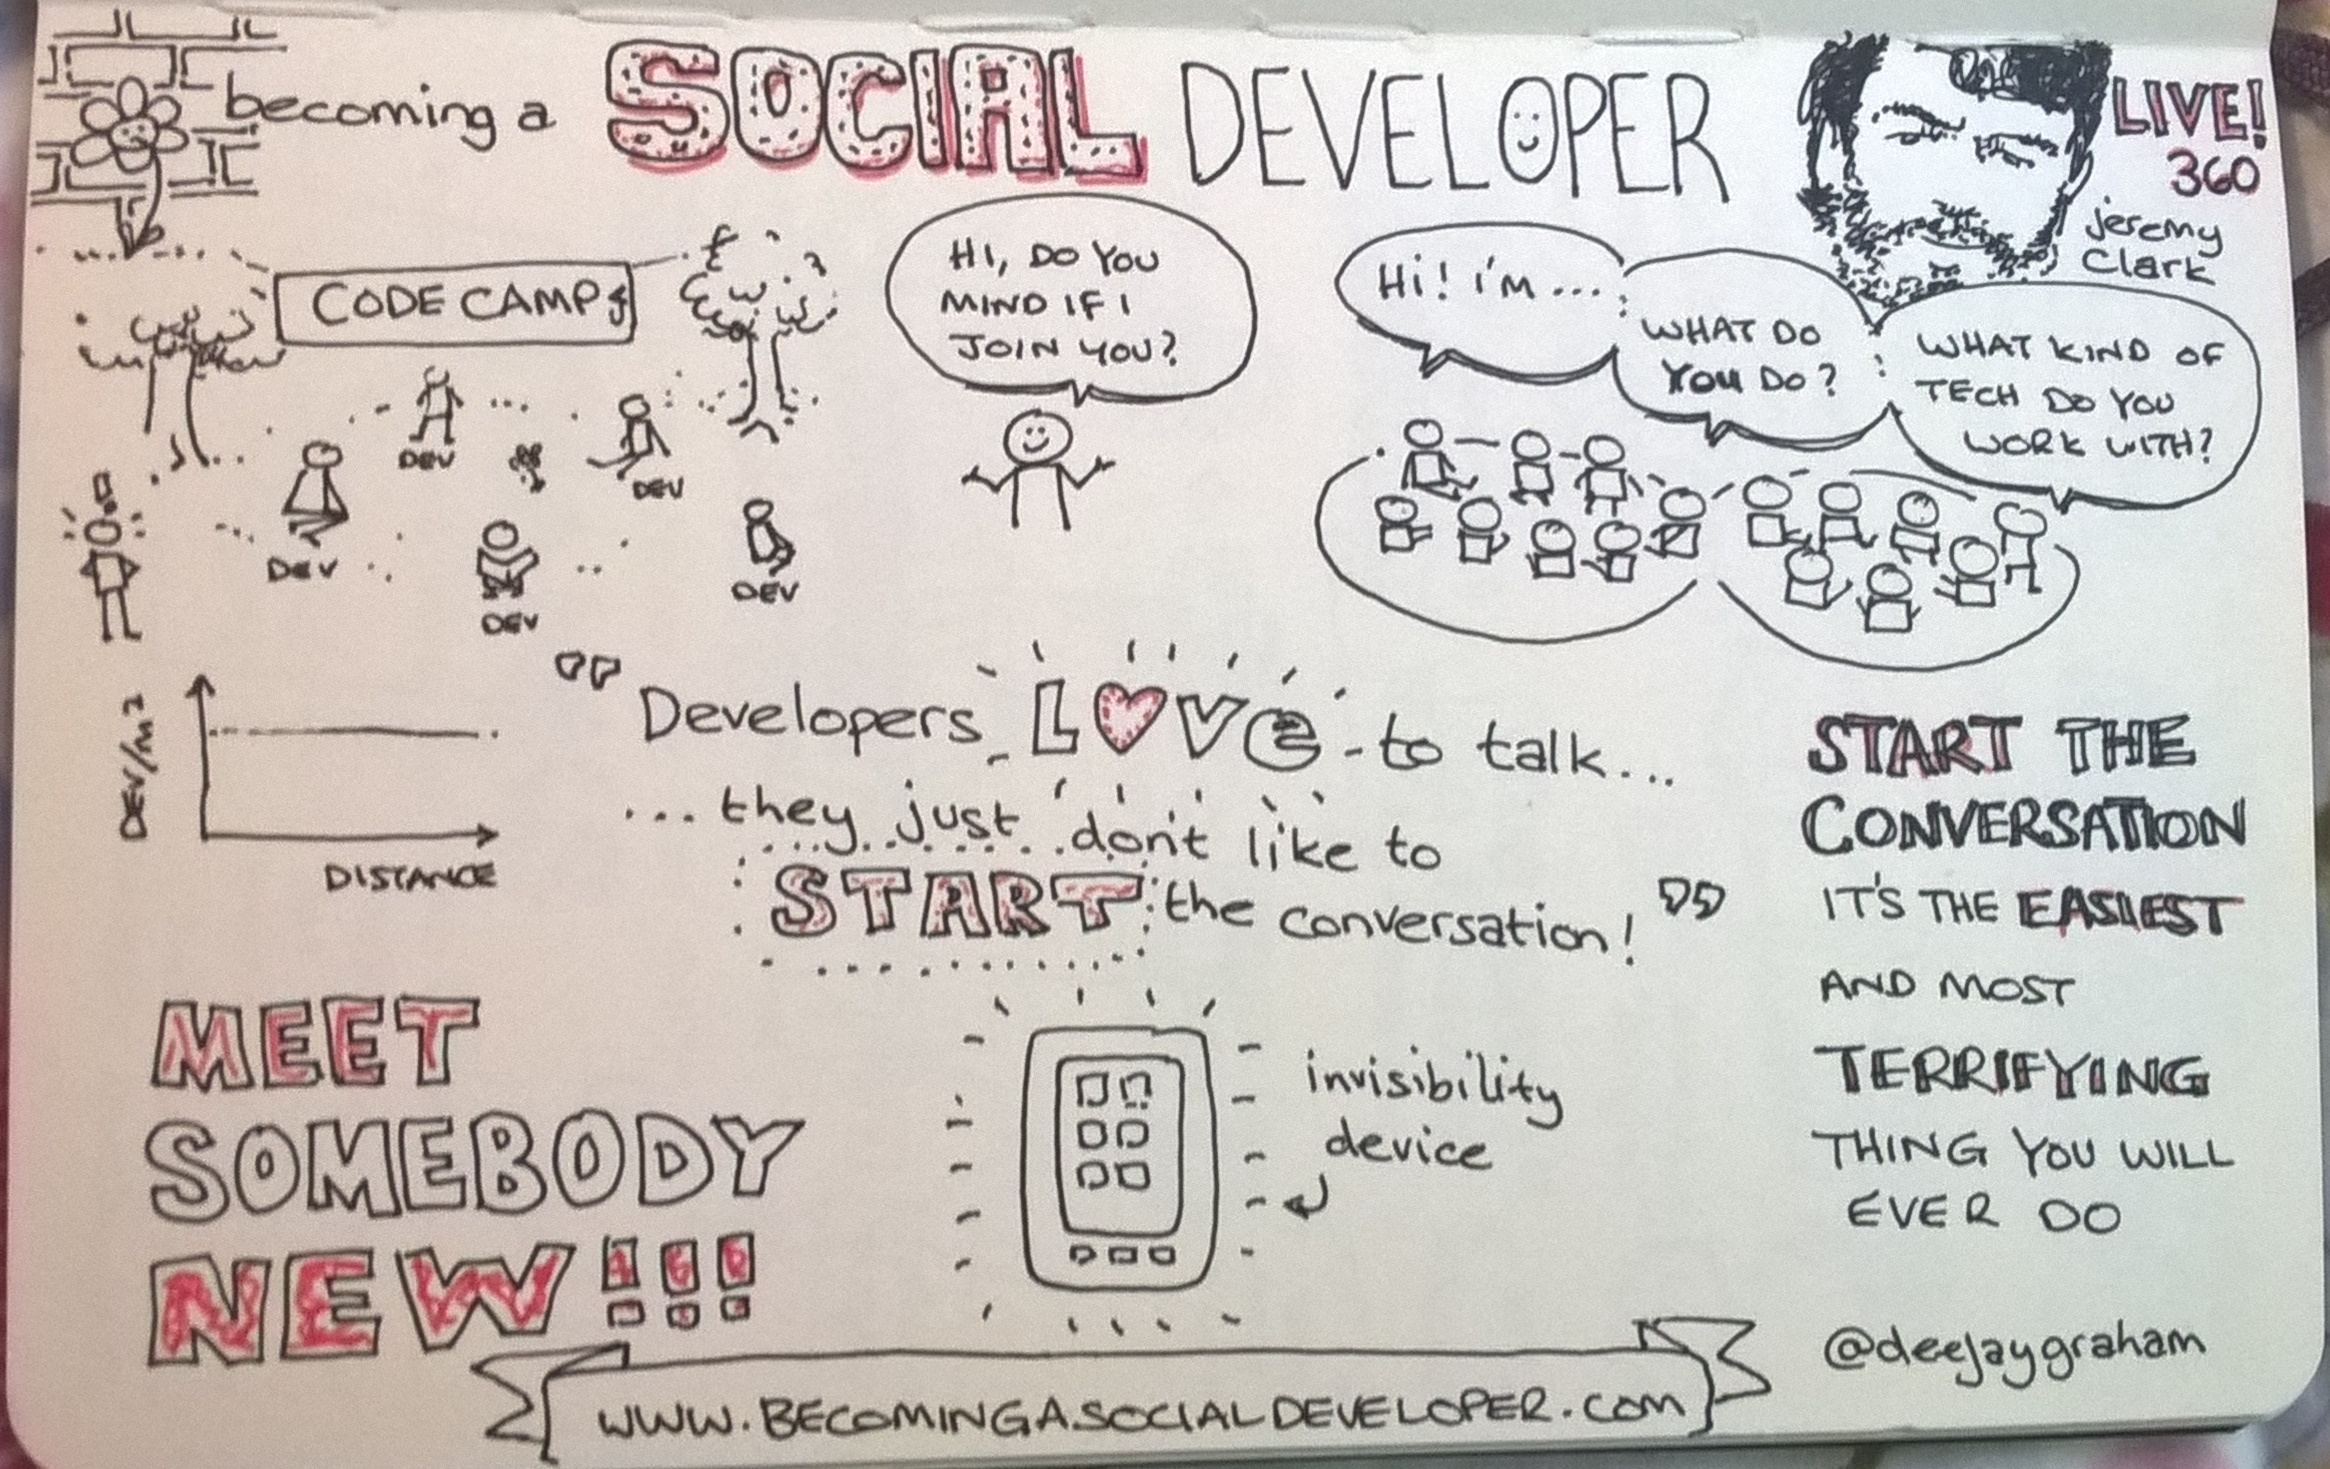 becoming a SOCIAL DEVELOPER
LIVE!
360
jeremy
Clark
CODE CAMP
HI, DO YOU
MIND IF I
JOIN YOU?
Hi! I'm...
WHAT DO
YOU DO?
WHAT KIND OF
TECH DO YOU
WORK WITH?
DEV
DEV
DEV
DEV
DEV
DEV/m²
DISTANCE
" Developers LOVE to talk...
... they just don't like to
START the conversation! "
START THE
CONVERSATION
IT'S THE EASIEST
AND MOST
TERRIFYING
THING YOU WILL
EVER DO
MEET
SOMEBODY
NEW!!!
invisibility
device
@deejaygraham
WWW.BECOMINGASOCIALDEVELOPER.COM